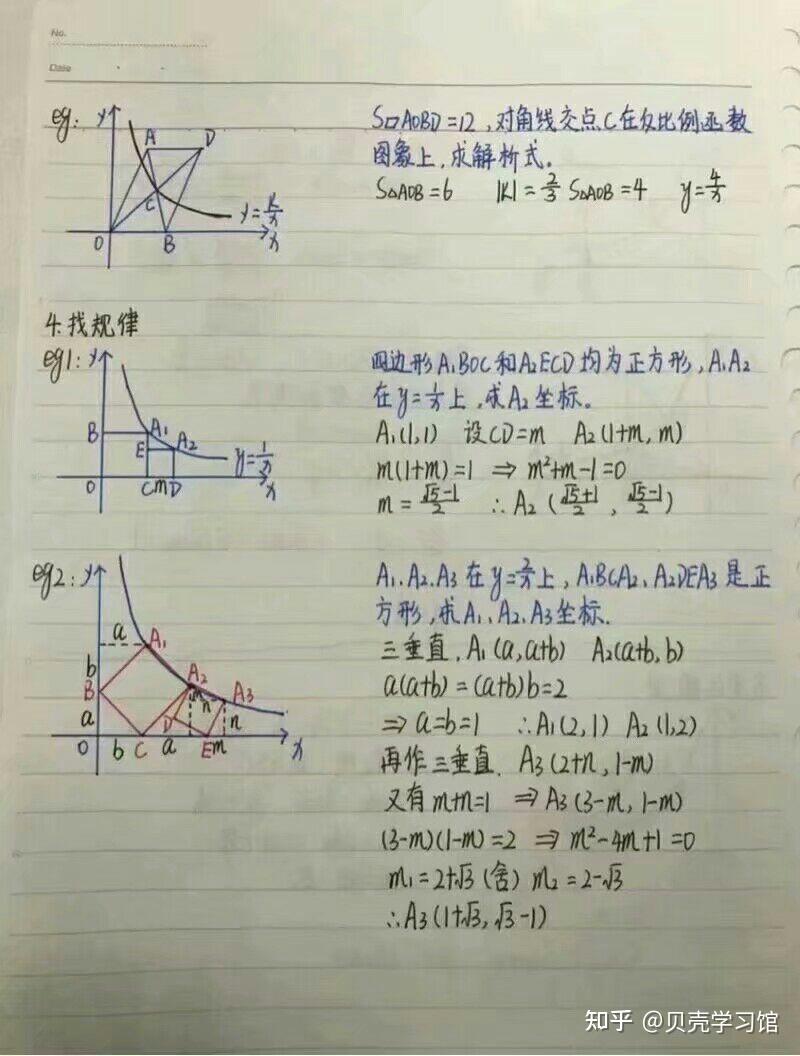 No.
Date
eg: y A D C y=k/x O B x
S▱AOBD=12，对角线交点C在反比例函数
图象上，求解析式。
S△AOB=6 |K|=2/3 S△AOB=4 y=4/x
4.找规律
eg1: y B A1 E A2 y=1/x O C m D x
四边形A1BOC和A2ECD均为正方形，A1A2
在y=1/x上，求A2坐标。
A1(1,1) 设CD=m A2(1+m, m)
m(1+m)=1 ⇒ m²+m-1=0
m=(√5-1)/2 ∴A2 ((√5+1)/2, (√5-1)/2)
eg2: y a A1 b B A2 A3 a D m n n O b C a E m x
A1、A2、A3在y=2/x上，A1BCA2、A2DEA3是正
方形，求A1、A2、A3坐标.
三垂直，A1(a,a+b) A2(a+b,b)
a(a+b)=(a+b)b=2
⇒a=b=1 ∴A1(2,1) A2(1,2)
再作三垂直、A3(2+n,1-m)
又有m+n=1 ⇒A3(3-m,1-m)
(3-m)(1-m)=2 ⇒ m²-4m+1=0
m1=2+√3(舍) m2=2-√3
∴A3(1+√3,√3-1)
知乎 @贝壳学习馆